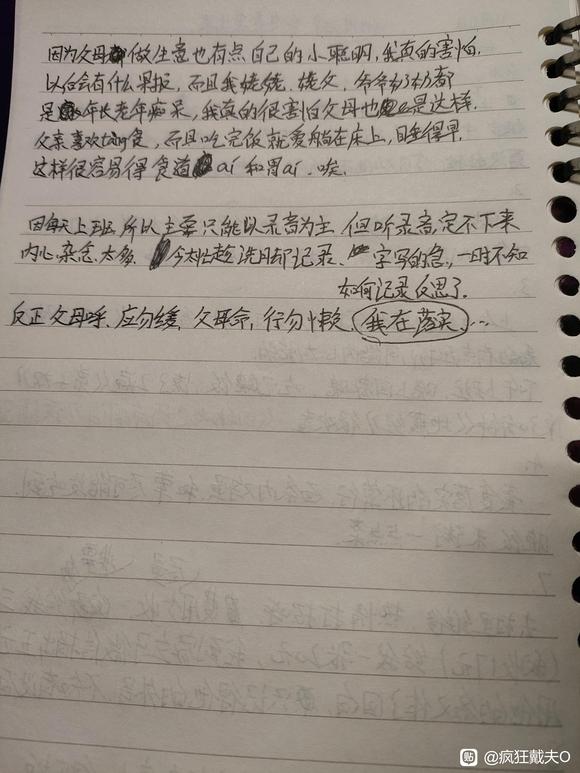 因为父母做生意也有点自己的小聪明,我真的害怕.
以后会有什么果报,而且我姥姥.姥爷,爷爷奶奶都
是年长老年痴呆,我真的很害怕父母也是这样.
父亲喜欢tang食,而且吃完饭就爱躺在床上,睡得早.
这样很容易得食道ai和胃ai.唉.
因每天上班,所以主要只能以录音为主.但听录音,定不下来
内心杂念.太多.今太趁洗月却记录.字写的急,一时不知
如何记录反思了.
反正父母呼.应勿缓,父母命,行勿懒,我在落实...
贴 @疯狂戴夫O